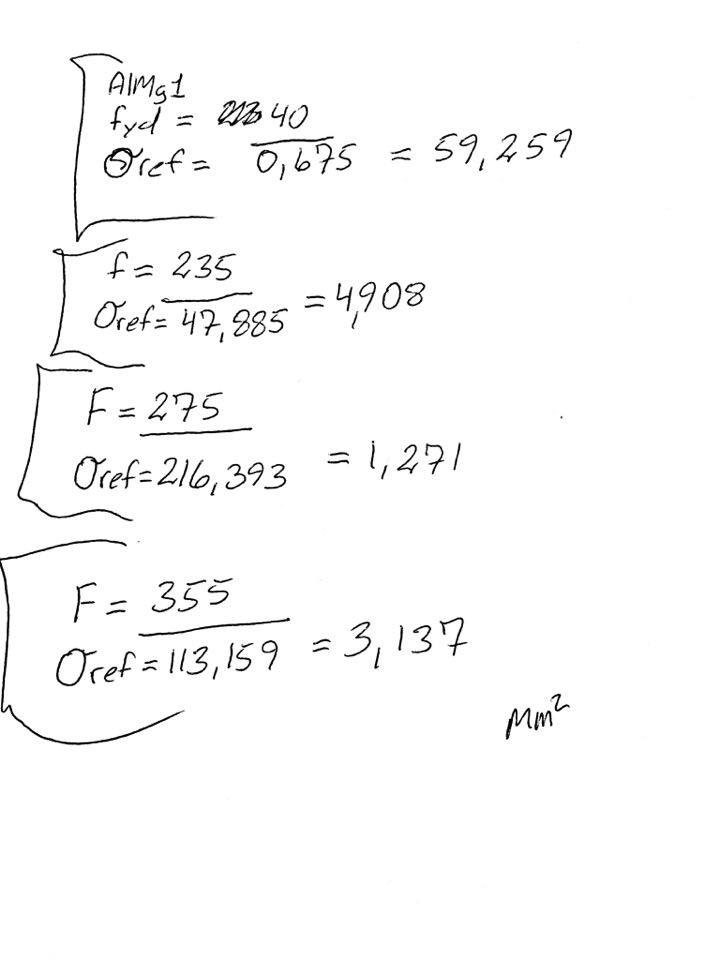 AlMg1
fyd = 40
σref = 0,675 = 59,259
f = 235
σref = 47,885 = 4,908
F = 275
σref = 216,393 = 1,271
F = 355
σref = 113,159 = 3,137
Mm²